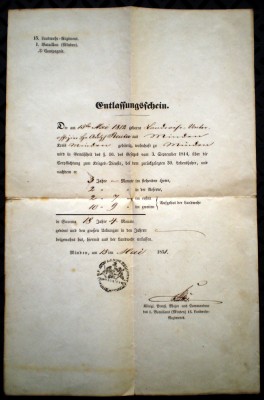 15. Landwehr-Regiment.
1. Bataillon (Minden).
Compagnie.
Entlassungsschein.
Der am 15ten Mai 1812 geborne Landwehr-Unter-
aus Minden
Kreis Minden gehörig, wohnhaft zu Minden
wird in Gemäßheit des §. des Gesetzes vom 3. September 1814, über die
Verpflichtung zum Kriegs-Dienste, bei dem zurückgelegten 39. Lebensjahre, und
nachdem er
3 Jahre Monate im stehenden Heere,
2 in der Reserve,
2 7 im ersten
10 9 im zweiten
Aufgebot der Landwehr
in Summa 18 Jahre 4 Monate,
gedient und den großen Uebungen in den Jahren
beigewohnt hat, hiermit aus der Landwehr entlassen.
Minden, am 15ten Mai 1851.
Königl. Preuß. Major und Commandeur
des 1. Bataillons (Minden) 15. Landwehr-
Regiments.